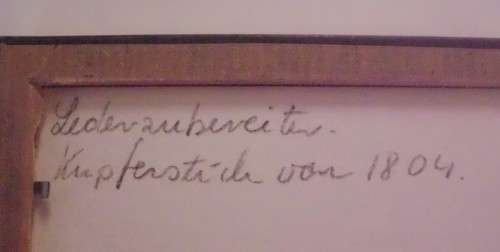 Lederzubereiter.
Kupferstich von 1804.